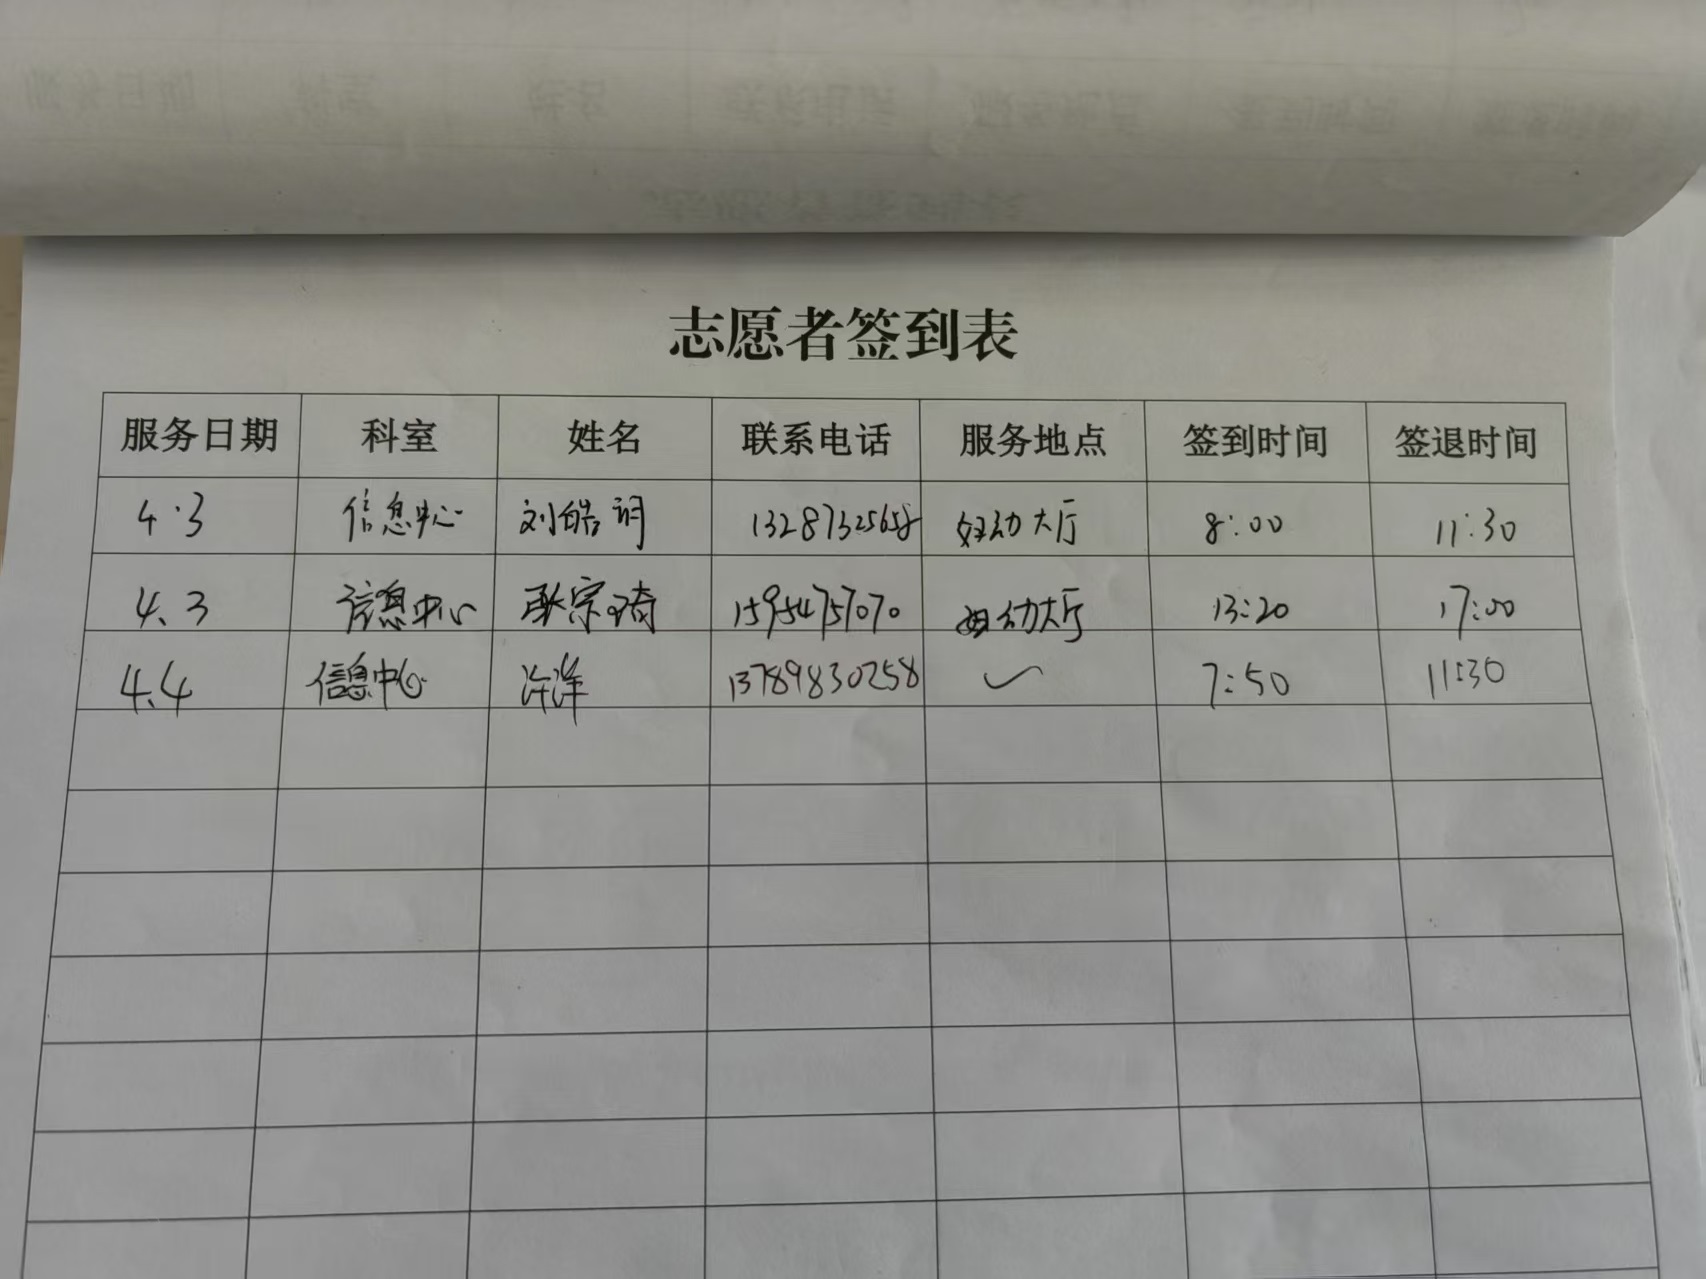 志愿者签到表
服务日期 科室 姓名 联系电话 服务地点 签到时间 签退时间
4.3 信息中心 刘皓词 13287325658 妇幼大厅 8:00 11:30
4.3 信息中心 耿宗琦 15954757070 妇幼大厅 13:20 17:00
4.4 信息中心 许洋 13789830258 ✓ 7:50 11:30